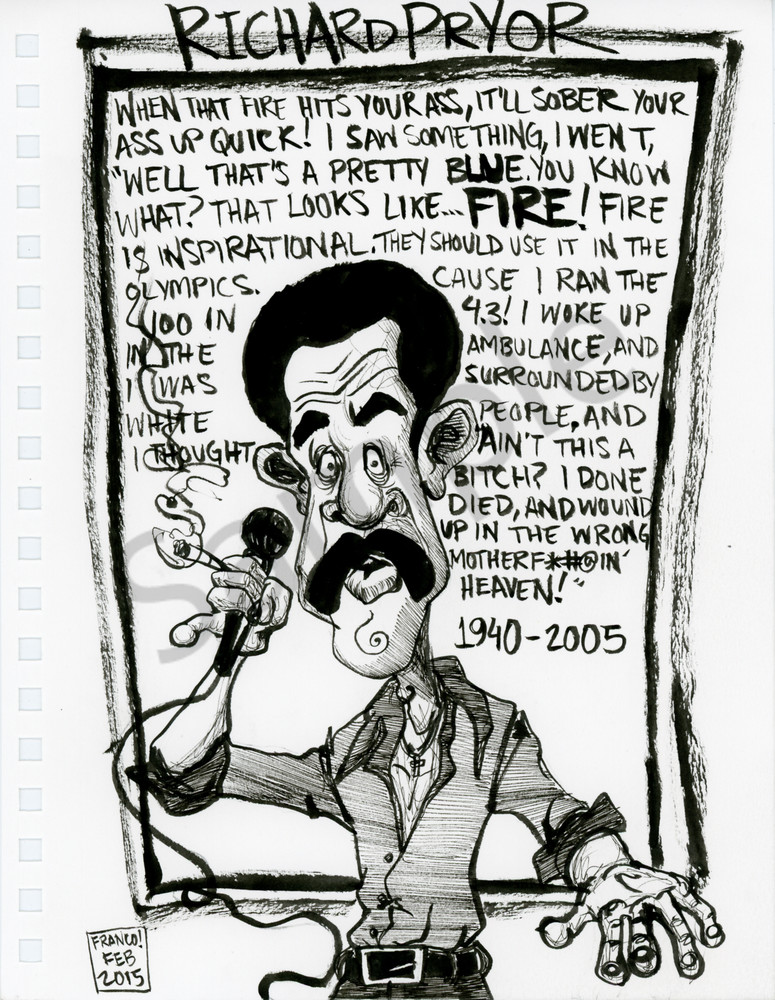 RICHARD PRYOR
WHEN THAT FIRE HITS YOUR ASS, IT'LL SOBER YOUR
ASS UP QUICK! I SAW SOMETHING, I WENT,
"WELL THAT'S A PRETTY BLUE. YOU KNOW
WHAT? THAT LOOKS LIKE... FIRE! FIRE
IS INSPIRATIONAL. THEY SHOULD USE IT IN THE
OLYMPICS. CAUSE I RAN THE
100 IN 4.3! I WOKE UP
IN THE AMBULANCE, AND
I WAS SURROUNDED BY
WHITE PEOPLE, AND
I THOUGHT "AIN'T THIS A
BITCH? I DONE
DIED, AND WOUND
UP IN THE WRONG
MOTHERF*#@IN'
HEAVEN!"
1940-2005
FRANCO!
FEB
2015
Sample